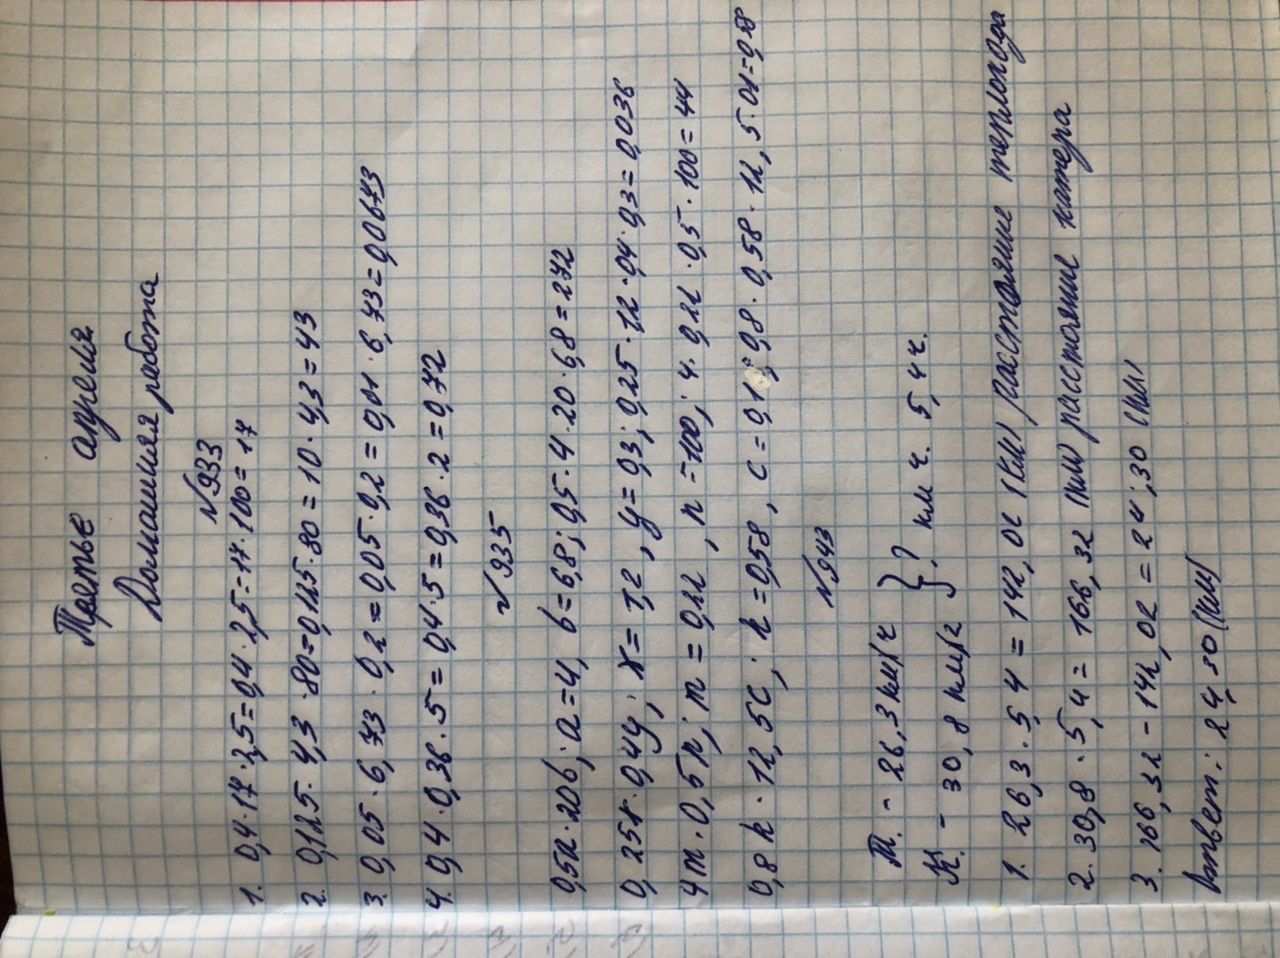 Третье апреля
Домашняя работа
№933
1. 0,4·17·2,5=0,4·2,5=17·100=17
2. 0,125·4,3·80=0,125·80=10·4,3=43
3. 0,05·6,73·0,2=0,05·0,2=0,01·6,73=0,0673
4. 0,4·0,36·5=0,4·5=0,36·2=0,72
№935
0,5a·20b; a=4, b=6,8; 0,5·4·20·6,8=272
0,25x·0,4y; x=1,2, y=0,3; 0,25·1,2·0,4·0,3=0,036
4m·0,5n; m=0,22, n=100; 4·0,22·0,5·100=44
0,8k·12,5c; k=0,58, c=0,1; 0,8·0,58·12,5·01=0,58
№943
Т. - 26,3 км/ч
К. - 30,8 км/ч } ? км ч. 5,4 ч.
1. 26,3·5,4=142,02 (км) расстояние теплохода
2. 30,8·5,4=166,32 (км) расстояние катера
3. 166,32-142,02=24,30 (км)
Ответ: 24,30 (км)